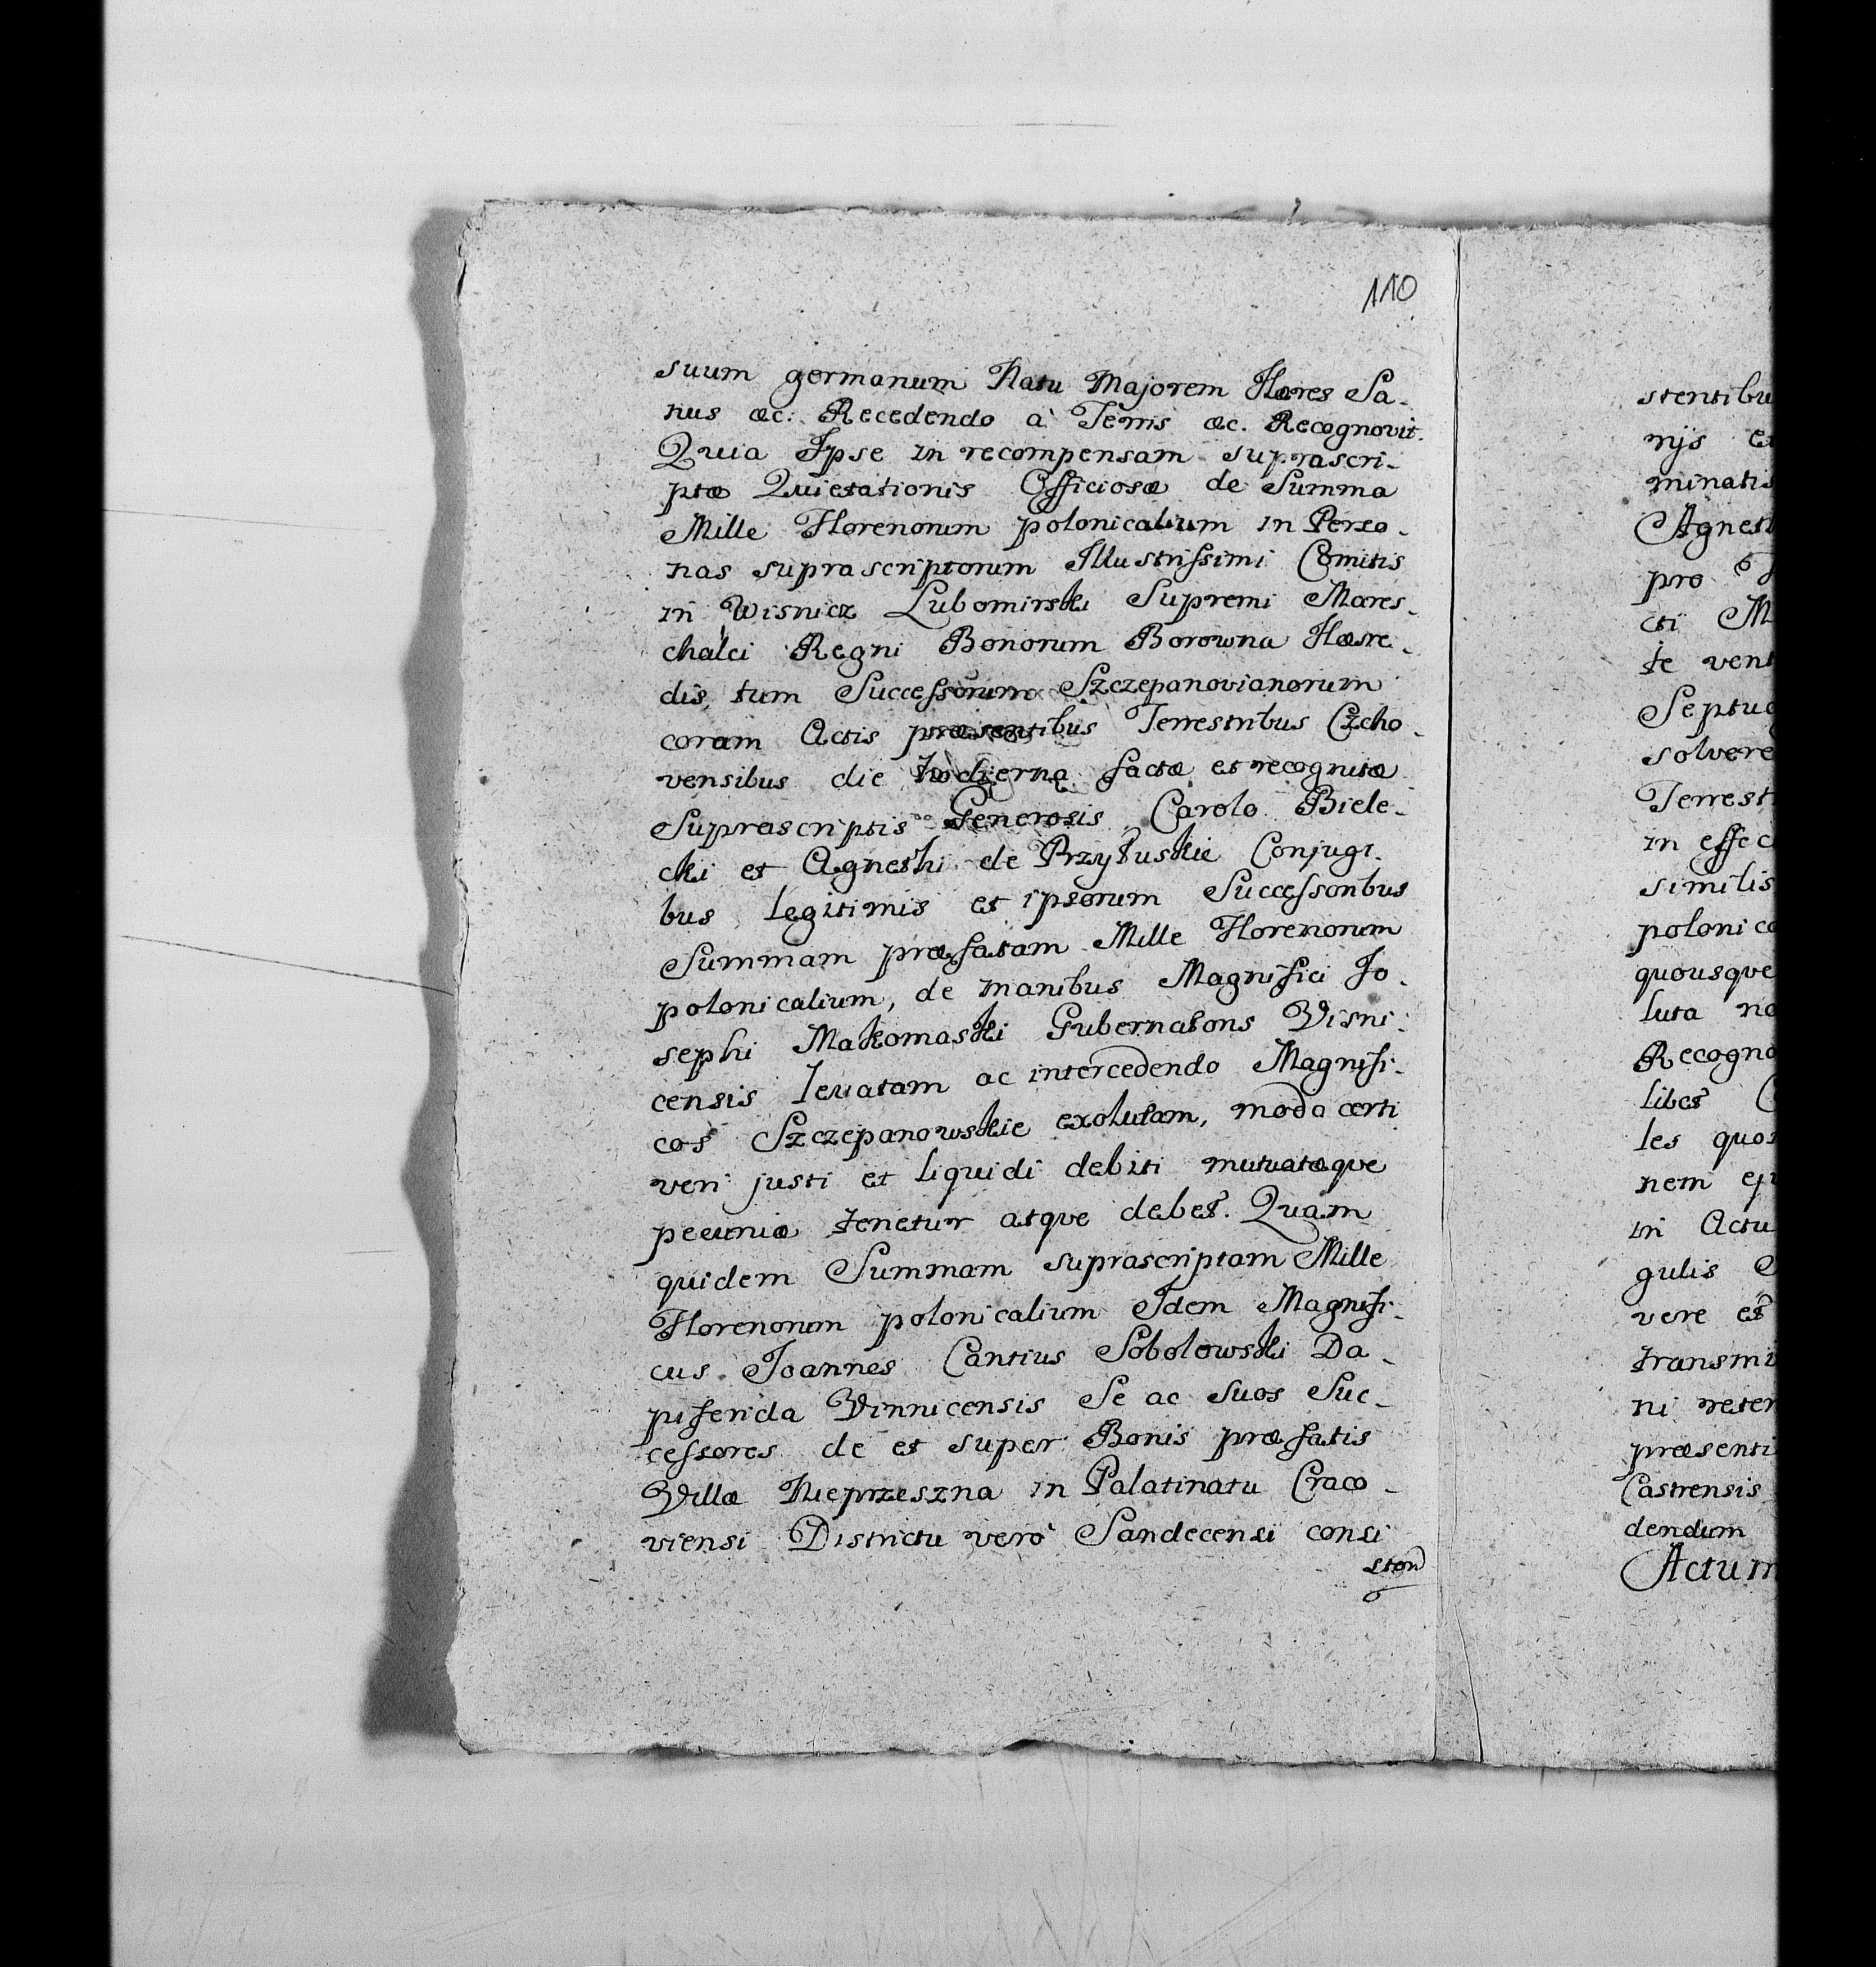 110
suum germanum Natu Majorem Hæres Sa-
nus æc: Recedendo à Terris æc. Recognovit.
Quia Ipse in recompensam suprascri-
ptæ Quietationis Officiosæ de Summa
Mille Florenorum polonicalium in Perso-
nas suprascriptorum Illustrissimi Comitis
in Wisnicz Lubomirski Supremi Mares-
chalci Regni Bonorum Borowna Hære-
dis, tum Successorum Szczepanovianorum
coram Actis præsentibus Terrestribus Czcho-
vensibus die hodierna factæ et recognitæ
Suprascriptis Generosis Carolo Biele-
cki et Agnethi de Przyłuskie Conjugi-
bus legitimis et ipsorum Successoribus
Summam præfatam Mille Florenorum
polonicalium, de manibus Magnifici Jo-
sephi Makomaski Gubernatoris Visni-
censis levatam ac intercedendo Magnifi-
cos Szczepanowskie exolutam, modo certi
veri justi et liquidi debiti mutuatæque
pecuniæ tenetur atque debet. Quam
quidem Summam suprascriptam Mille
Florenorum polonicalium Idem Magnifi-
cus Joannes Cantius Sobolowski Da-
piferida Vinnicensis Se ac Suos Suc-
cessores de et super Bonis præfatis
Villæ Nieprzeszna in Palatinatu Craco-
viensi Districtu verò Sandecensi consi
sten
stentibu
nijs et
minatis
Agnet
pro
cti M
te vent
Septua
solvere
Terrest
in effec
similis
polonica
quousque
luta no
Recogno
libet
les quos
nem ej
in Actu
gulis
vere et
transmi
ni reter
præsenti
Castrensis
dendum
Actum